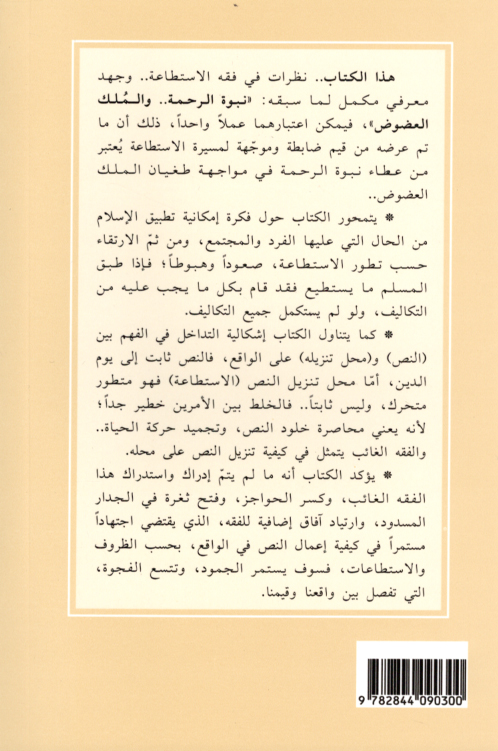 هذا الكتاب.. نظرات في فقه الاستطاعة.. وجهد
معرفي مكمل لما سبقه: «نبوة الرحمة.. والمُلك
العضوض»، فيمكن اعتبارهما عملاً واحداً، ذلك أن ما
تم عرضه من قيم ضابطة وموجّهة لمسيرة الاستطاعة يُعتبر
من عطاء نبوة الرحمة في مواجهة طغيان الملك
العضوض..
* يتمحور الكتاب حول فكرة إمكانية تطبيق الإسلام
من الحال التي عليها الفرد والمجتمع، ومن ثمّ الارتقاء
حسب تطور الاستطاعة، صعوداً وهبوطاً؛ فإذا طبق
المسلم ما يستطيع فقد قام بكل ما يجب عليه من
التكاليف، ولو لم يستكمل جميع التكاليف.
* كما يتناول الكتاب إشكالية التداخل في الفهم بين
(النص) و(محل تنزيله) على الواقع، فالنص ثابت إلى يوم
الدين، أمّا محل تنزيل النص (الاستطاعة) فهو متطور
متحرك، وليس ثابتاً.. فالخلط بين الأمرين خطير جداً؛
لأنه يعني محاصرة خلود النص، وتجميد حركة الحياة..
والفقه الغائب يتمثل في كيفية تنزيل النص على محله.
* يؤكد الكتاب أنه ما لم يتمّ إدراك واستدراك هذا
الفقه الغائب، وكسر الحواجز، وفتح ثغرة في الجدار
المسدود، وارتياد آفاق إضافية للفقه، الذي يقتضي اجتهاداً
مستمراً في كيفية إعمال النص في الواقع، بحسب الظروف
والاستطاعات، فسوف يستمر الجمود، وتتسع الفجوة،
التي تفصل بين واقعنا وقيمنا.
9 782844 090300